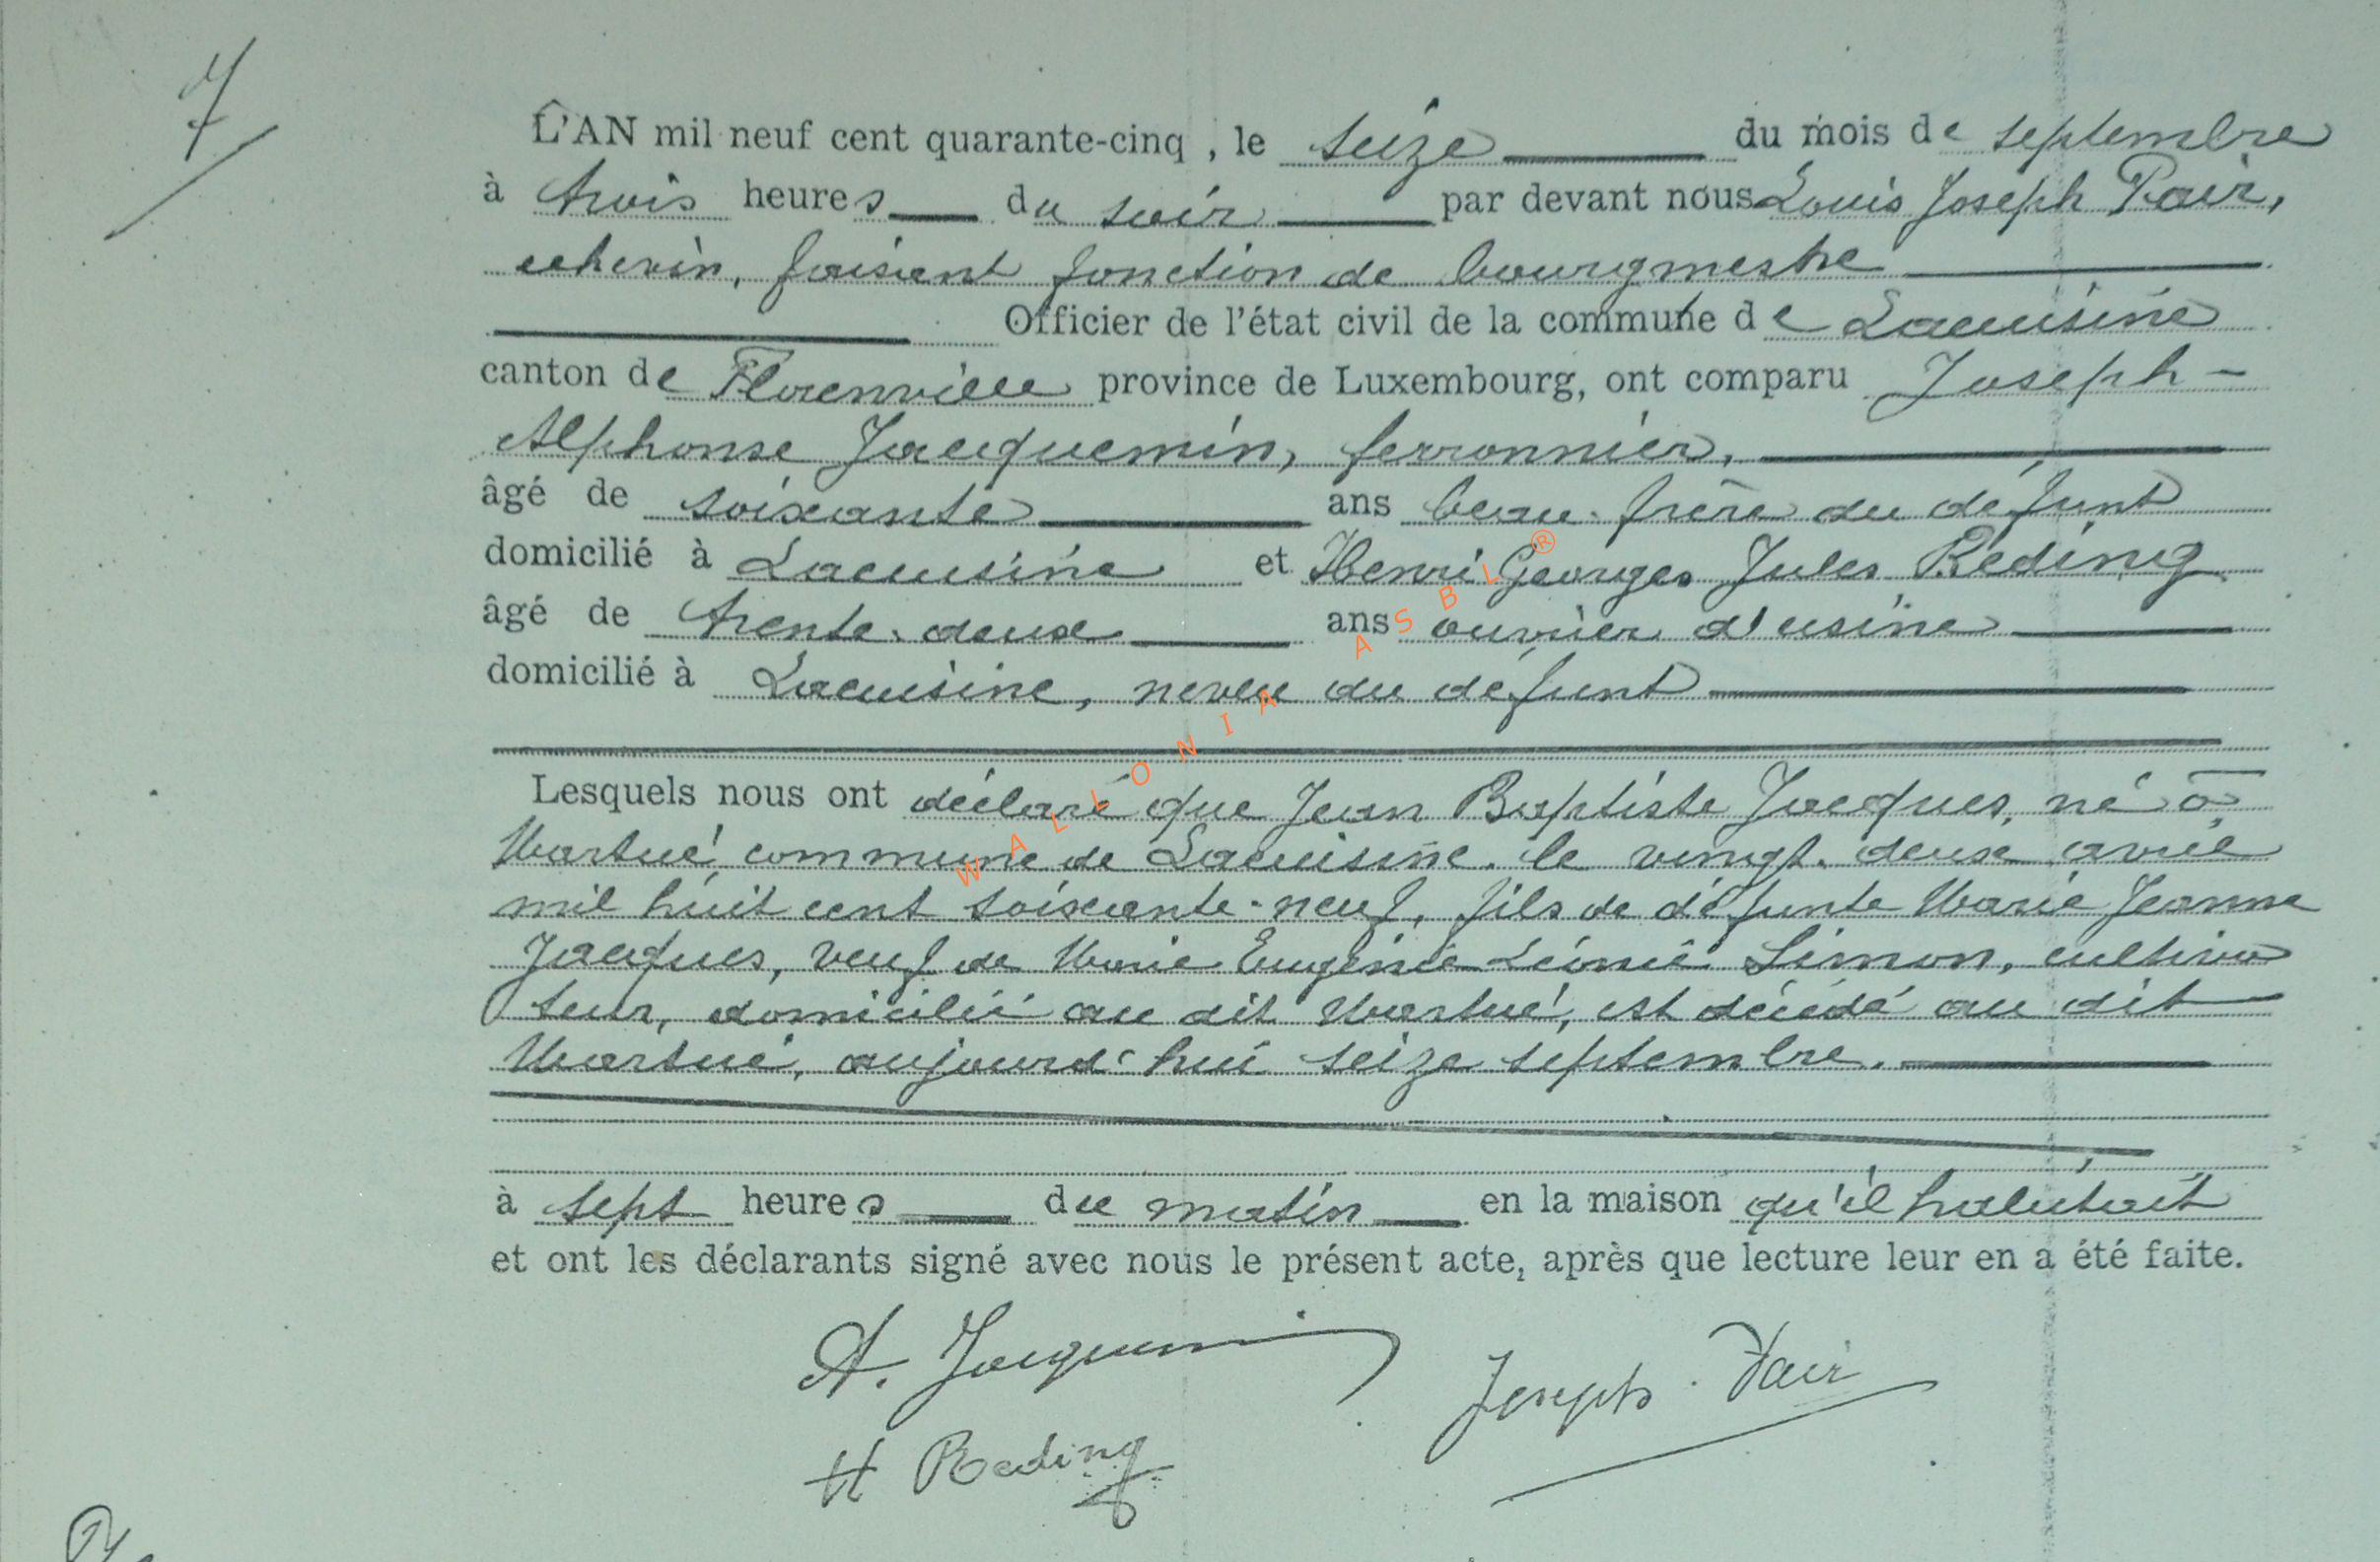 7
L'AN mil neuf cent quarante-cinq , le seize du mois de septembre
à trois heures du soir par devant nous Louis Joseph Pair,
echevin, faisant fonction de bourgmestre
Officier de l'état civil de la commune de Lacuisine
canton de Florenville province de Luxembourg, ont comparu Joseph-
Alphonse Jacquemin, ferronnier,
âgé de soixante ans beau-frère du défunt
domicilié à Lacuisine et Henri Georges Jules Reding
âgé de trente-deux ans ouvrier d'usine
domicilié à Lacuisine, neveu du défunt
Lesquels nous ont déclaré que Jean Baptiste Jacques, né à
Martué, commune de Lacuisine, le vingt-deux avril
mil huit cent soixante-neuf, fils de défunte Marie Jeanne
Jacques, veuf de Marie Eugénie Léonie Simon, cultiva
teur, domicilié au dit Martué, est décédé au dit
Martué, aujourd'hui seize septembre.
à sept heures du matin en la maison qu'il habitait
et ont les déclarants signé avec nous le présent acte, après que lecture leur en a été faite.
A. Jacquemin
Joseph. Pair
H Reding
WALLONIA ASBL ®